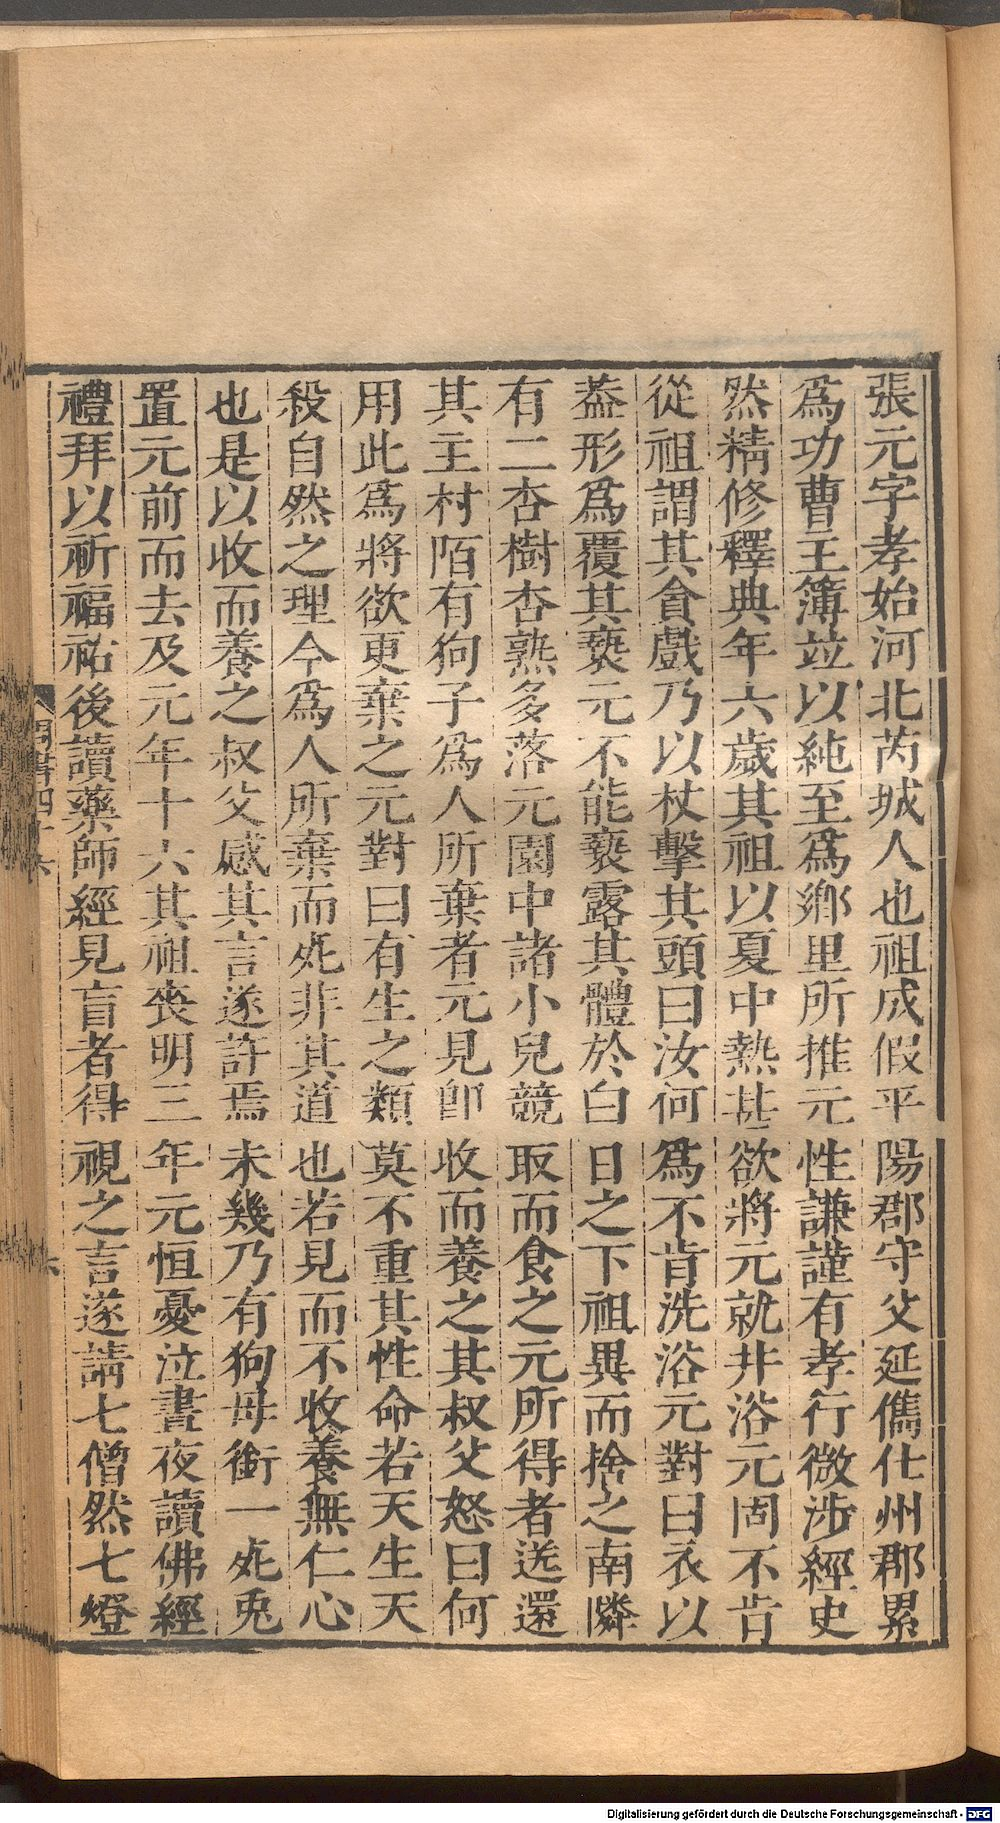 張元字孝始河北芮城人也祖成假平陽郡守父延儁仕州郡累
爲功曹主簿竝以純至爲鄉里所推元性謙謹有孝行微涉經史
然精修釋典年六歲其祖以夏中熱甚欲將元就井浴元固不肯
從祖謂其貪戲乃以杖擊其頭曰汝何爲不肯洗浴元對曰衣以
葢形爲覆其褻元不能褻露其體於白日之下祖異而捨之南隣
有二杏樹杏熟多落元園中諸小兒競取而食之元所得者送還
其主村陌有狗子爲人所棄者元見卽收而養之其叔父怒曰何
用此爲將欲更棄之元對曰有生之類莫不重其性命若天生天
殺自然之理今爲人所棄而死非其道也若見而不收養無仁心
也是以收而養之叔父感其言遂許焉未幾乃有狗母銜一死兎
置元前而去及元年十六其祖喪明三年元恒憂泣晝夜讀佛經
禮拜以祈福祐後讀藥師經見盲者得視之言遂請七僧然七燈
周書四十六
六
Digitalisierung gefördert durch die Deutsche Forschungsgemeinschaft - DFG